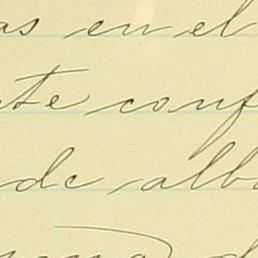 as en el
te conf
de alb